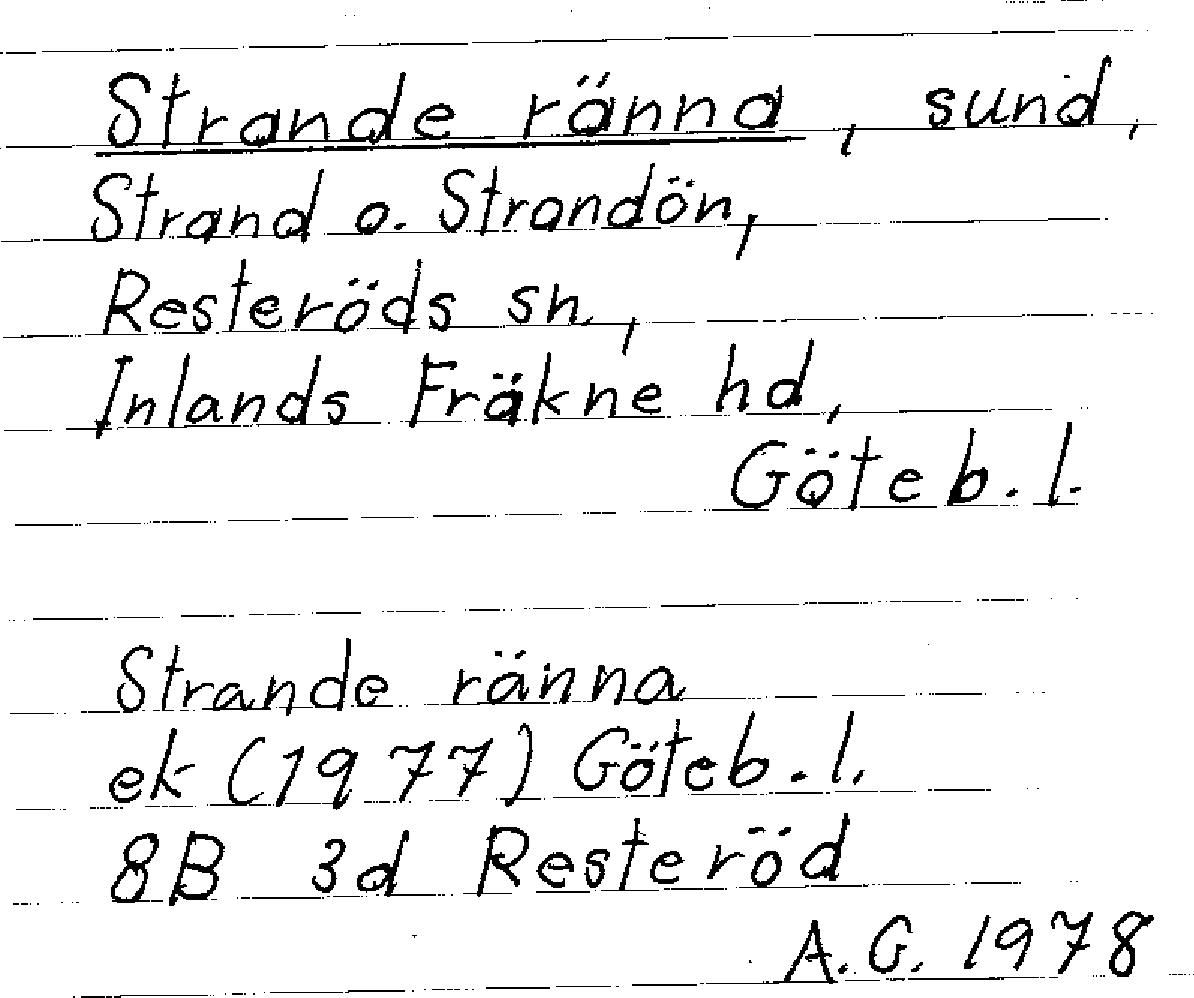 Strande ränna, sund,
Strand o. Strandön,
Resteröds sn,
Inlands Fräkne hd,
Göteb. l.
Strande ränna
ek (1977) Göteb. l.
8B 3d Resteröd
A.G. 1978